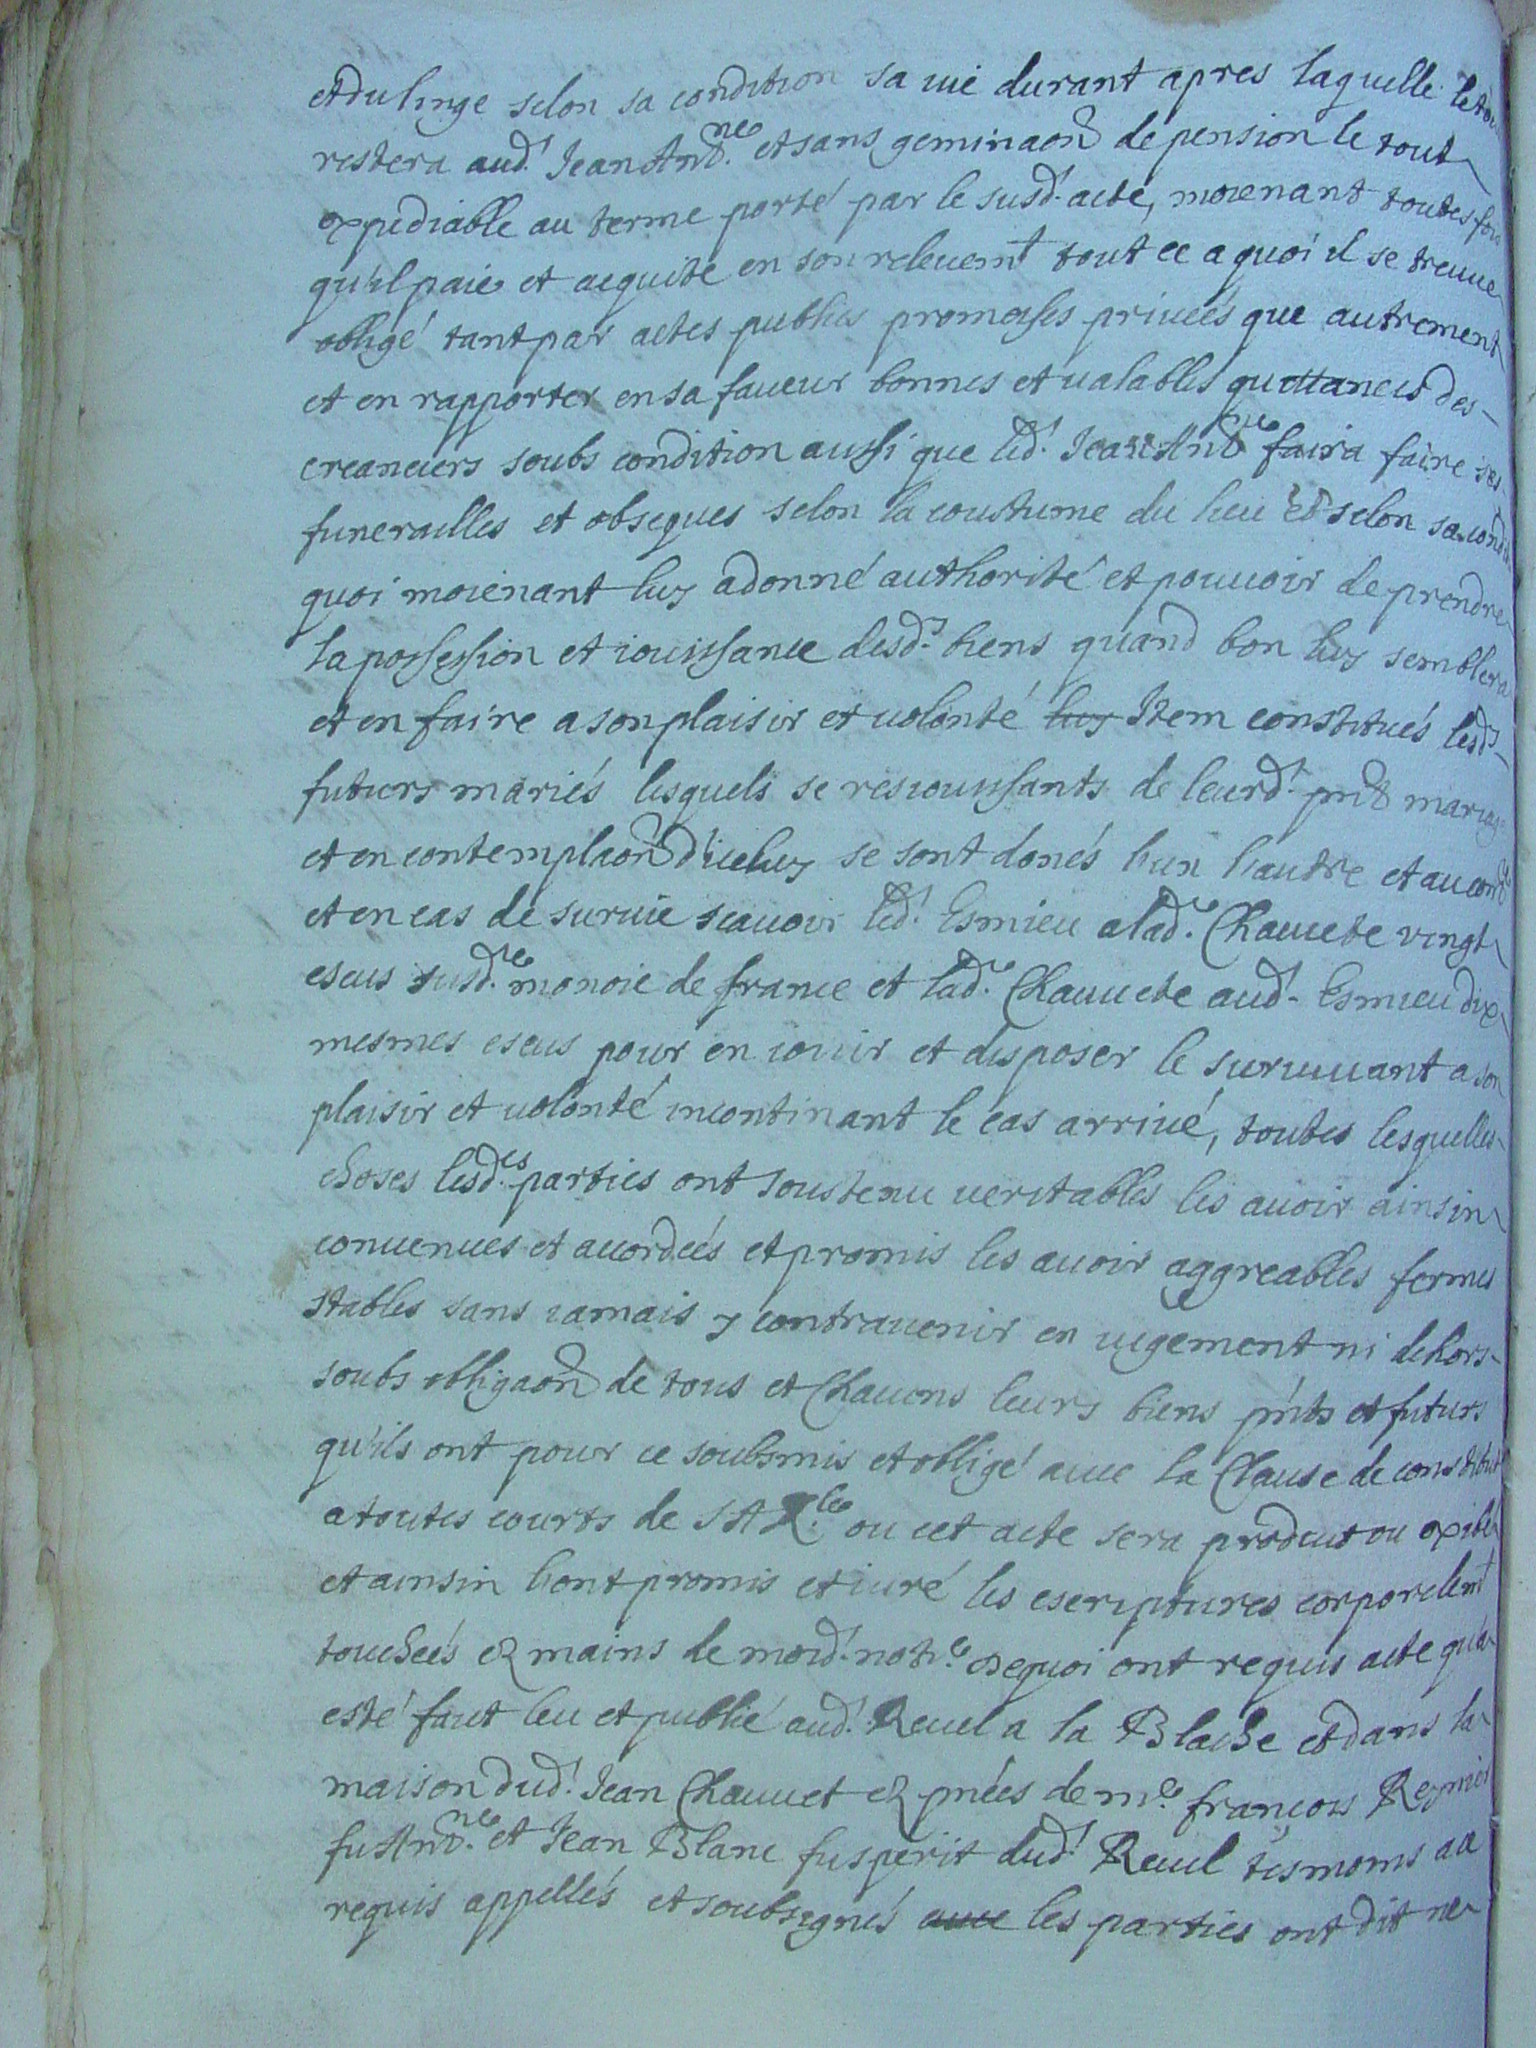 et du linge selon sa condition sa uie durant apres laquelle le tou
restera aud.t Jean Ant.ne et sans geminaon de pension le tout
expediable au terme porté par le susd.t acte, moienant toutesfois
qu'il paie et acquite en son releuemt tout ce a quoi il se treuue
obligé tant par actes publics promesses priueés que autrement
et en rapporter en sa faueur bonnes et ualables quittances des
creanciers soubs condition aussi que led.t Jean Ant.ne faira faire ses
funerailles et obseques selon la coustume du lieu et selon sa condi
quoi moienant luy a donné authorité et pouuoir de prendre
la possession et iouissance desd.s biens quand bon luy semblera
et en faire a son plaisir et uolonté luy Item constitués lesd.s
futurs mariés lesquels se resiouissants de leurd.t pnt mariage
et en contemplaon d'iceluy se sont donés l'un l'autre et au cont.e
et en cas de suruie scauoir led.t Esmieu a lad.e Chauuete vingt
escus susd.ne monoie de france et lad.e Chauuete aud.t Esmieu dix
mesmes escus pour en iouir et disposer le suruiuant a son
plaisir et uolonté incontinant le cas arriué, toutes lesquelles
choses lesd.es parties ont soustenu ueritables les auoir ainsin
conuenues et accordeés et promis les auoir aggreables fermes
stables sans iamais y contrauenir en iugement ni dehors
soubs obligaon de tous et Chacuns leurs biens pnts et futurs
qu'ils ont pour ce soubsmis et obligé auec la Clause de constitut
a toutes courts de S A R.le ou cet acte sera produit ou exibé
et ainsin l'ont promis et iuré les escriptures corporelemt
toucheés ez mains de moid.t not.e dequoi ont requis acte qu'a
esté fait leu et publié aud.t Reuel a la Blache et dans la
maison dud.t Jean Chauuet ez pnces de m.e françois Reynier
fu Ant.ne et Jean Blanc fu sperit dud.t Reuel tesmoins a ce
requis appellés et soubsignés auec les parties ont dit ne